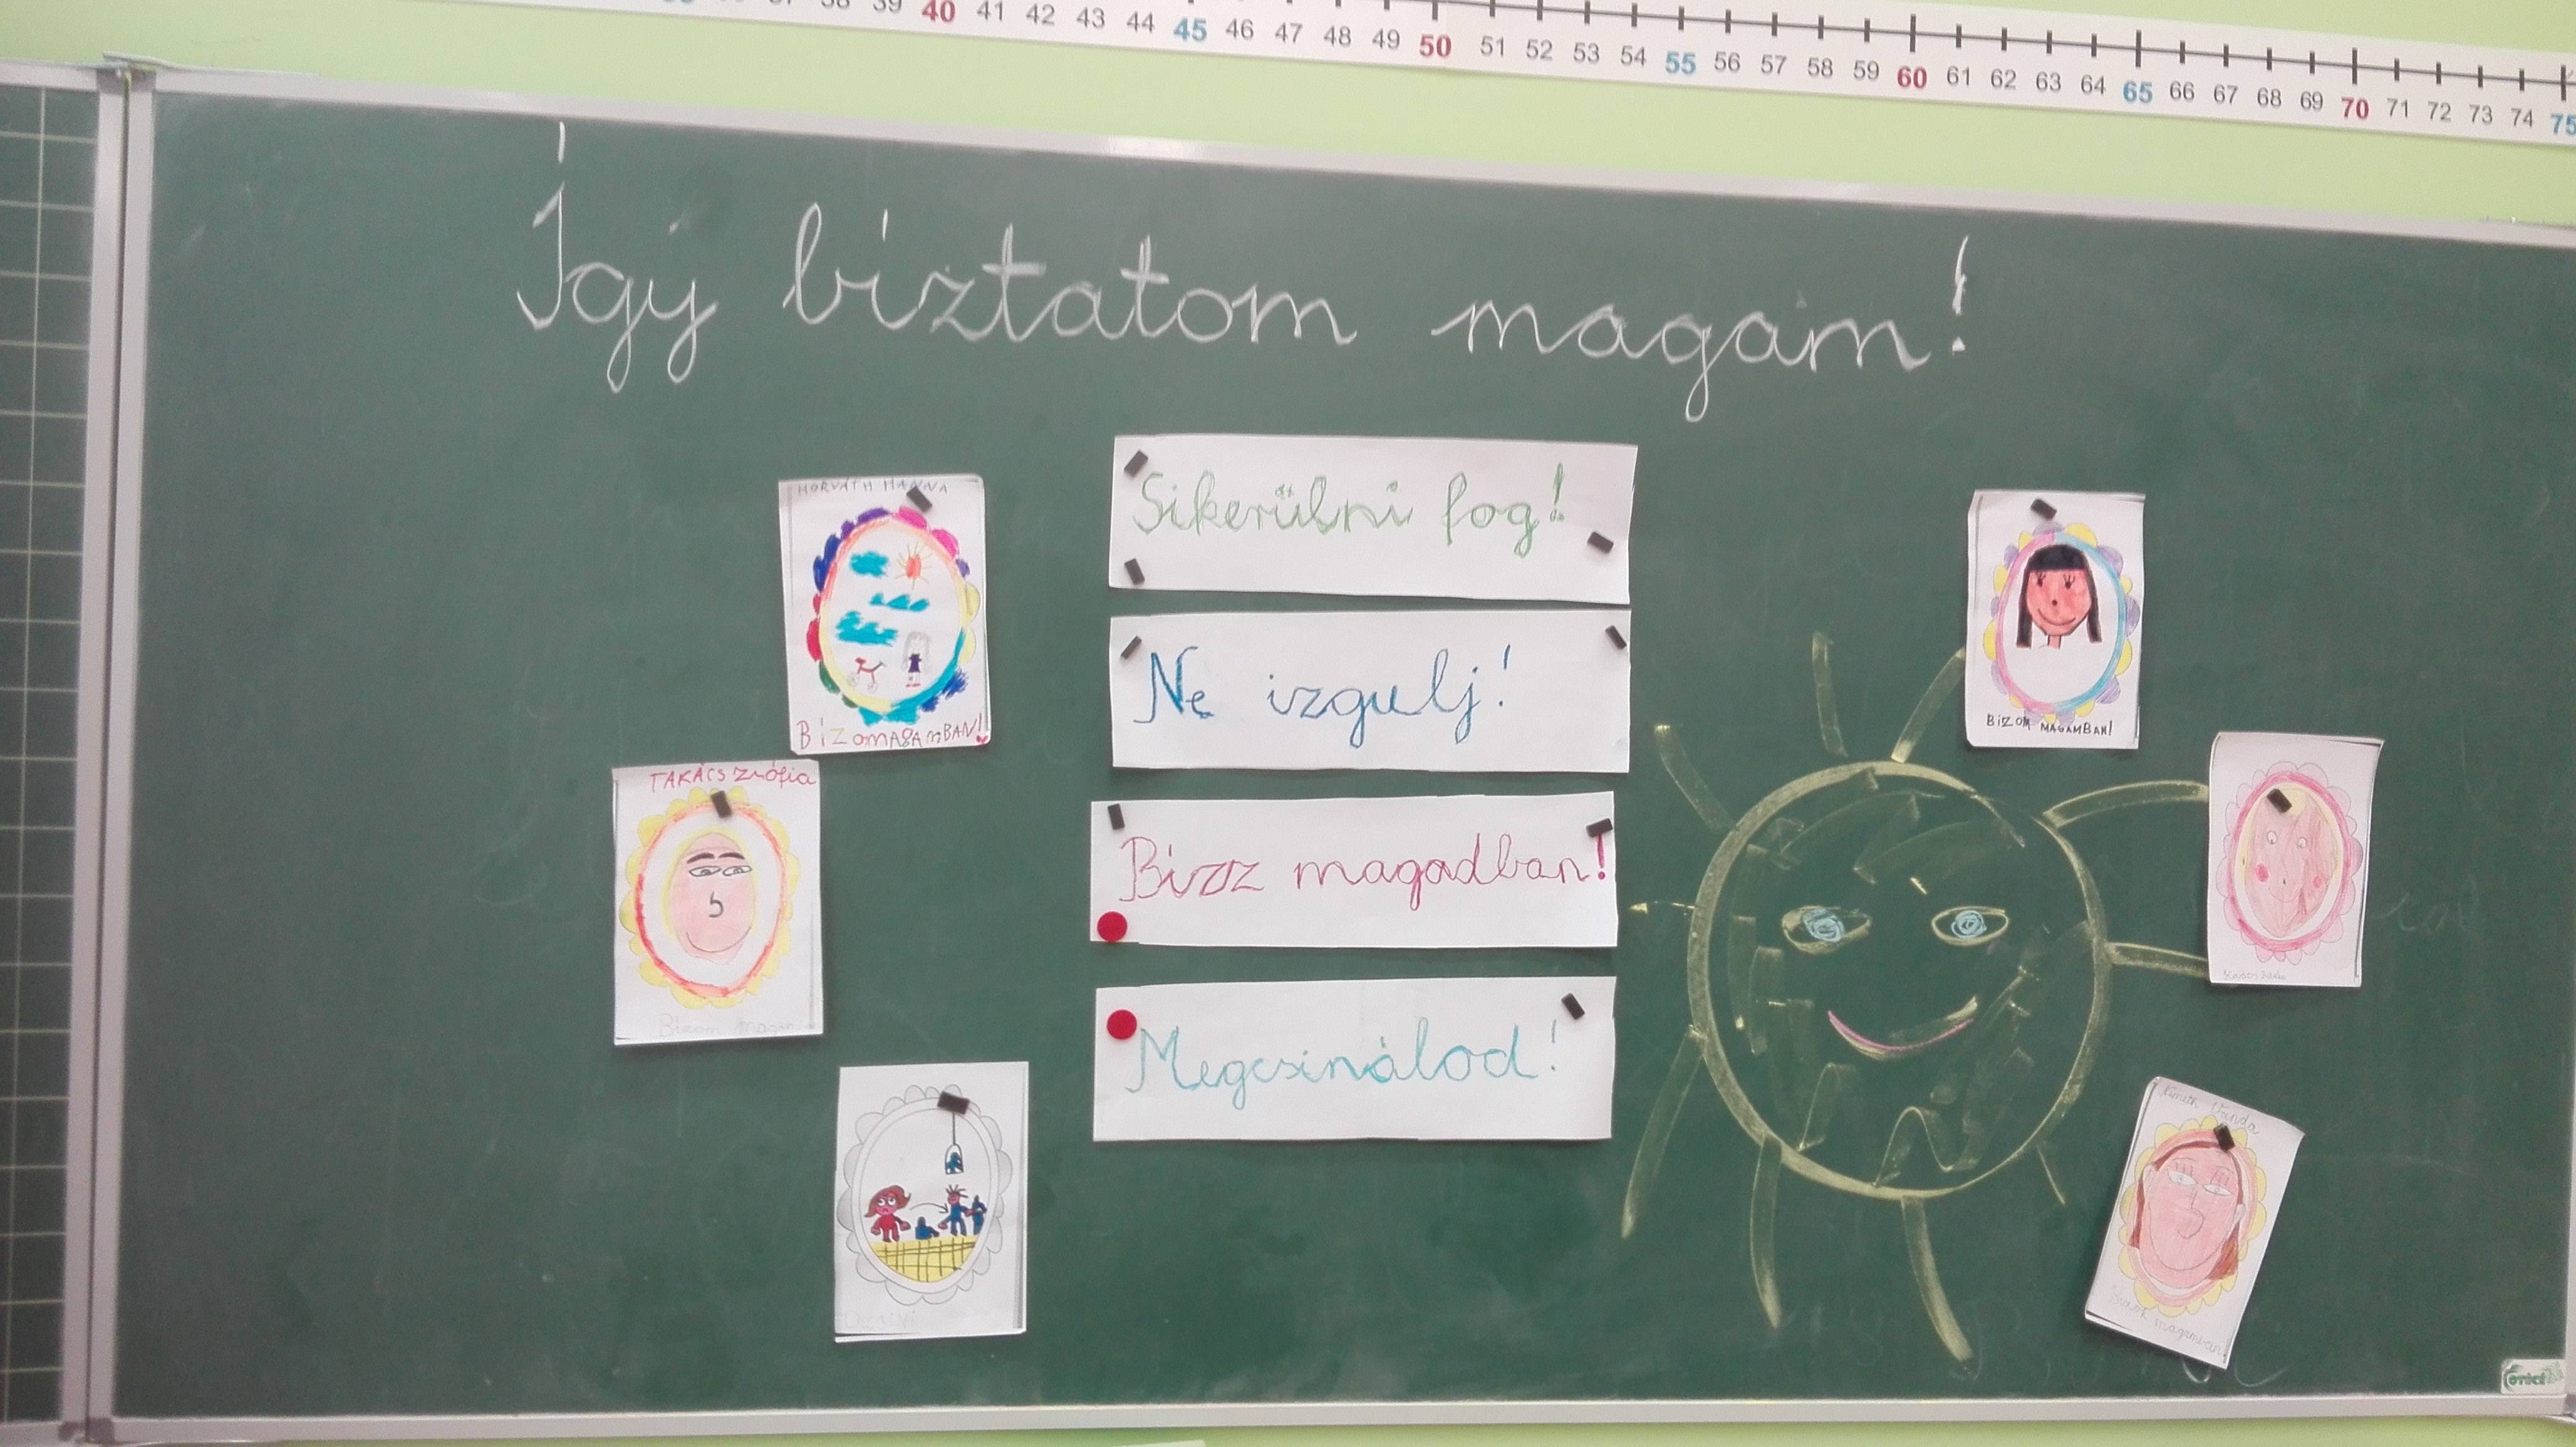 40 41 42 43 44 45 46 47 48 49 50 51 52 53 54 55 56 57 58 59 60 61 62 63 64 65 66 67 68 69 70 71 72 73 74 75
Így biztatom magam!
HORVÁTH HANNA
BízoMAGAMBAN!
Sikerülni fog!
Ne izgulj!
Bízz magadban!
Megcsinálod!
BIZOM MAGAMBAN!
TAKÁCS Zsófia
Bízom magam
Németh Vanda
Bízok magamban!